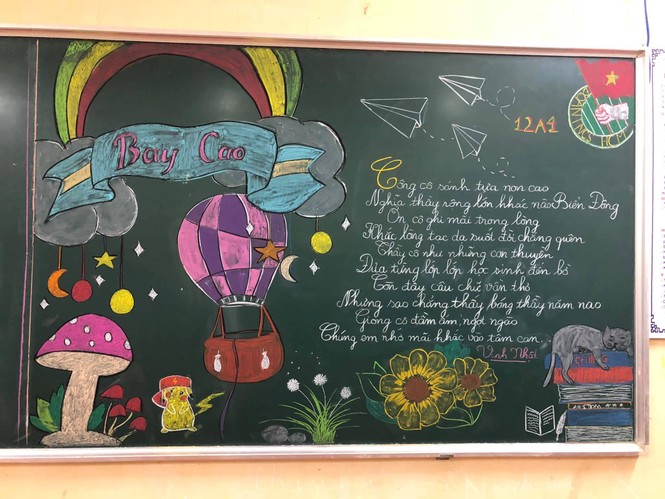 Bay Cao
12A1
Công cô sánh tựa non cao
Nghĩa thầy rộng lớn khác nào Biển Đông
Ơn cô ghi mãi trong lòng
Khắc lòng tạc dạ suốt đời chẳng quên
Thầy cô như những con thuyền
Đưa từng lớp lớp học sinh đến bờ
Còn đây câu chữ vần thơ
Nhưng sao chẳng thấy bóng thầy năm nao
Giọng cô đầm ấm, ngọt ngào
Chúng em nhớ mãi khắc vào tâm can.